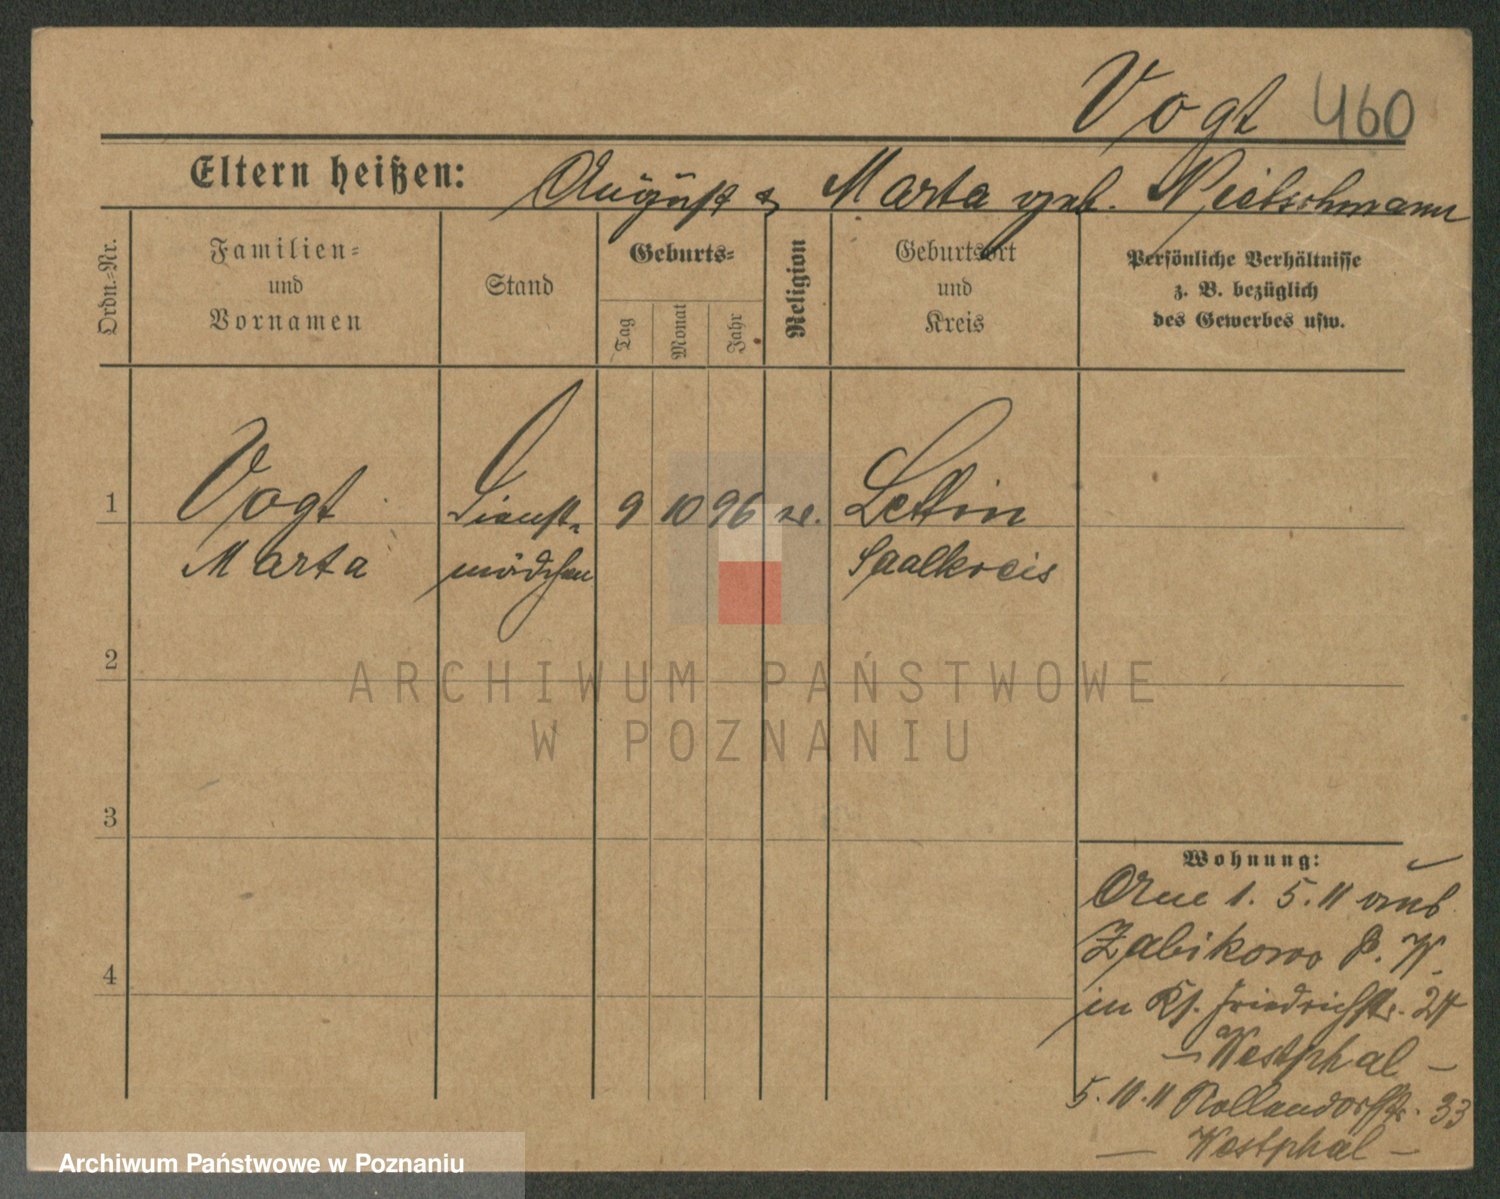 Vogt 460
Eltern heißen: August & Marta geb. Nietschmann
Ordn.-Nr.
Familien-
und
Vornamen
Stand
Geburts-
Tag
Monat
Jahr
Religion
Geburtsort
und
Kreis
Persönliche Verhältnisse
z. B. bezüglich
des Gewerbes usw.
1 Vogt Dienst- 9 10 96 Lettin
Marta mädchen Saalkreis
2
3
4
Wohnung:
Am 1. 5. 11 aus
Zabikowo P. W.
in Ks. Friedrichstr. 24
– Westphal –
5. 10. 11 Kollandorfstr. 33
– Westphal –
ARCHIWUM PAŃSTWOWE
W POZNANIU
Archiwum Państwowe w Poznaniu